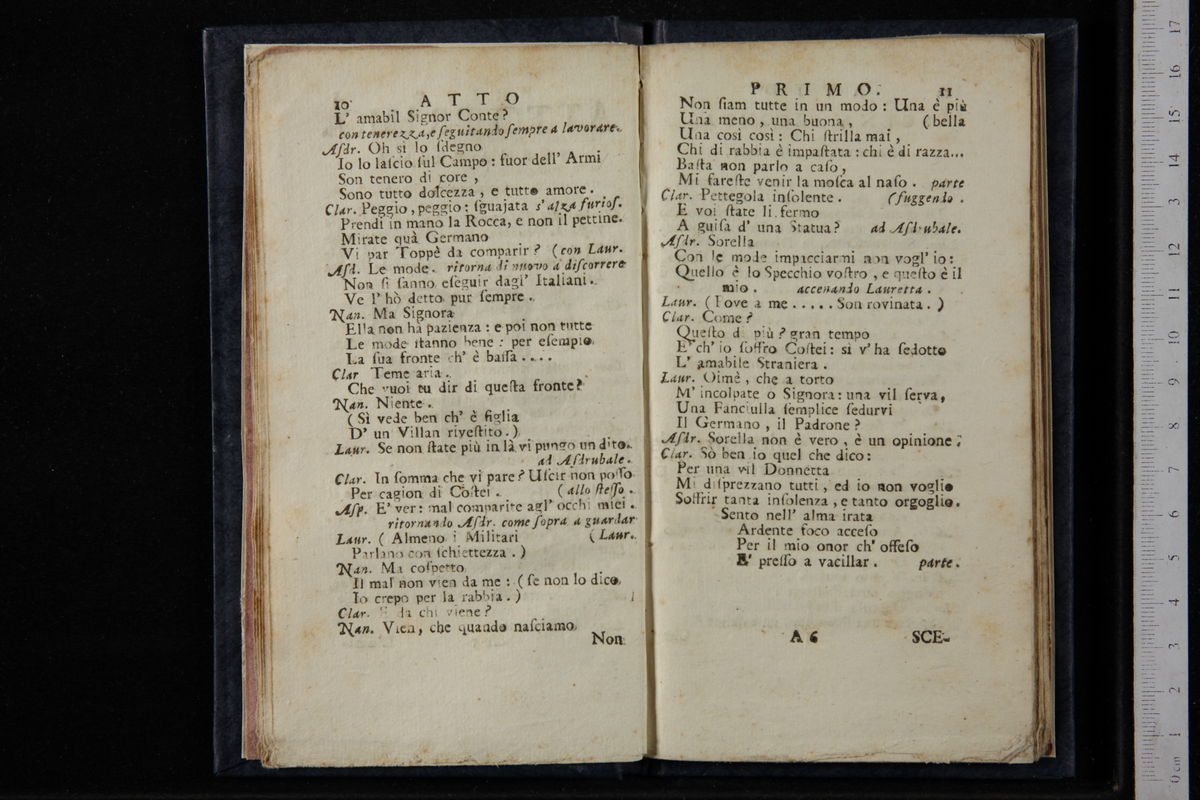 10 ATTO
L' amabil Signor Conte?
con tenerezza, e ſeguitando ſempre a lavorare.
Aſdr. Oh sì lo ſdegno
Io lo laſcio ſul Campo: fuor dell' Armi
Son tenero di core,
Sono tutto dolcezza, e tutto amore.
Clar. Peggio, peggio: ſguajata s' alza furioſ.
Prendi in mano la Rocca, e non il pettine.
Mirate quà Germano
Vi par Toppè da comparir? (con Laur.
Aſd. Le mode. ritorna di nuovo a diſcorrere
Non ſi fanno eſeguir dagl' Italiani.
Ve l' hò detto pur ſempre.
Nan. Ma Signora
Ella non ha pazienza: e poi non tutte
Le mode ſtanno bene: per eſempio
La ſua fronte ch' è baſſa....
Clar Teme aria.
Che vuoi tu dir di queſta fronte?
Nan. Niente.
(Sì vede ben ch' è figlia
D' un Villan riveſtito.)
Laur. Se non ſtate più in là vi pungo un dito.
ad Aſdrubale.
Clar. In ſomma che vi pare? Uſcir non poſſo
Per cagion di Coſtei. (allo ſteſſo.
Aſp. E' ver: mal comparite agl' occhi miei.
ritornando Aſdr. come ſopra a guardar
Laur. (Almeno i Militari (Laur.
Parlano con ſchiettezza.)
Nan. Ma coſpetto
Il mal non vien da me: (ſe non lo dico
Io crepo per la rabbia.)
Clar. E da chi viene?
Nan. Vien, che quando naſciamo
Non
PRIMO. 11
Non ſiam tutte in un modo: Una è più
Una meno, una buona, (bella
Una così così: Chi ſtrilla mai,
Chi di rabbia è impaſtata: chi è di razza...
Baſta non parlo a caſo,
Mi fareſte venir la moſca al naſo. parte
Clar. Pettegola inſolente. (fuggendo.
E voi ſtate lì fermo
A guiſa d' una Statua? ad Aſdrubale.
Aſdr. Sorella
Con le mode impacciarmi non vogl' io:
Quello è lo Specchio voſtro, e queſto è il
mio. accenando Lauretta.
Laur. (Pove a me..... Son rovinata.)
Clar. Come?
Queſto di più? gran tempo
E' ch' io ſoffro Coſtei: sì v' ha ſedotto
L' amabile Straniera.
Laur. Oimè, che a torto
M' incolpate o Signora: una vil ſerva,
Una Fanciulla ſemplice ſedurvi
Il Germano, il Padrone?
Aſdr. Sorella non è vero, è un opinione.
Clar. Sò ben io quel che dico:
Per una vil Donnetta
Mi diſprezzano tutti, ed io non voglio
Soffrir tanta inſolenza, e tanto orgoglio.
Sento nell' alma irata
Ardente foco acceſo
Per il mio onor ch' offeſo
E' preſſo a vacillar. parte.
A 6 SCE-
0 cm 1 2 3 4 5 6 7 8 9 10 11 12 13 14 15 16 17